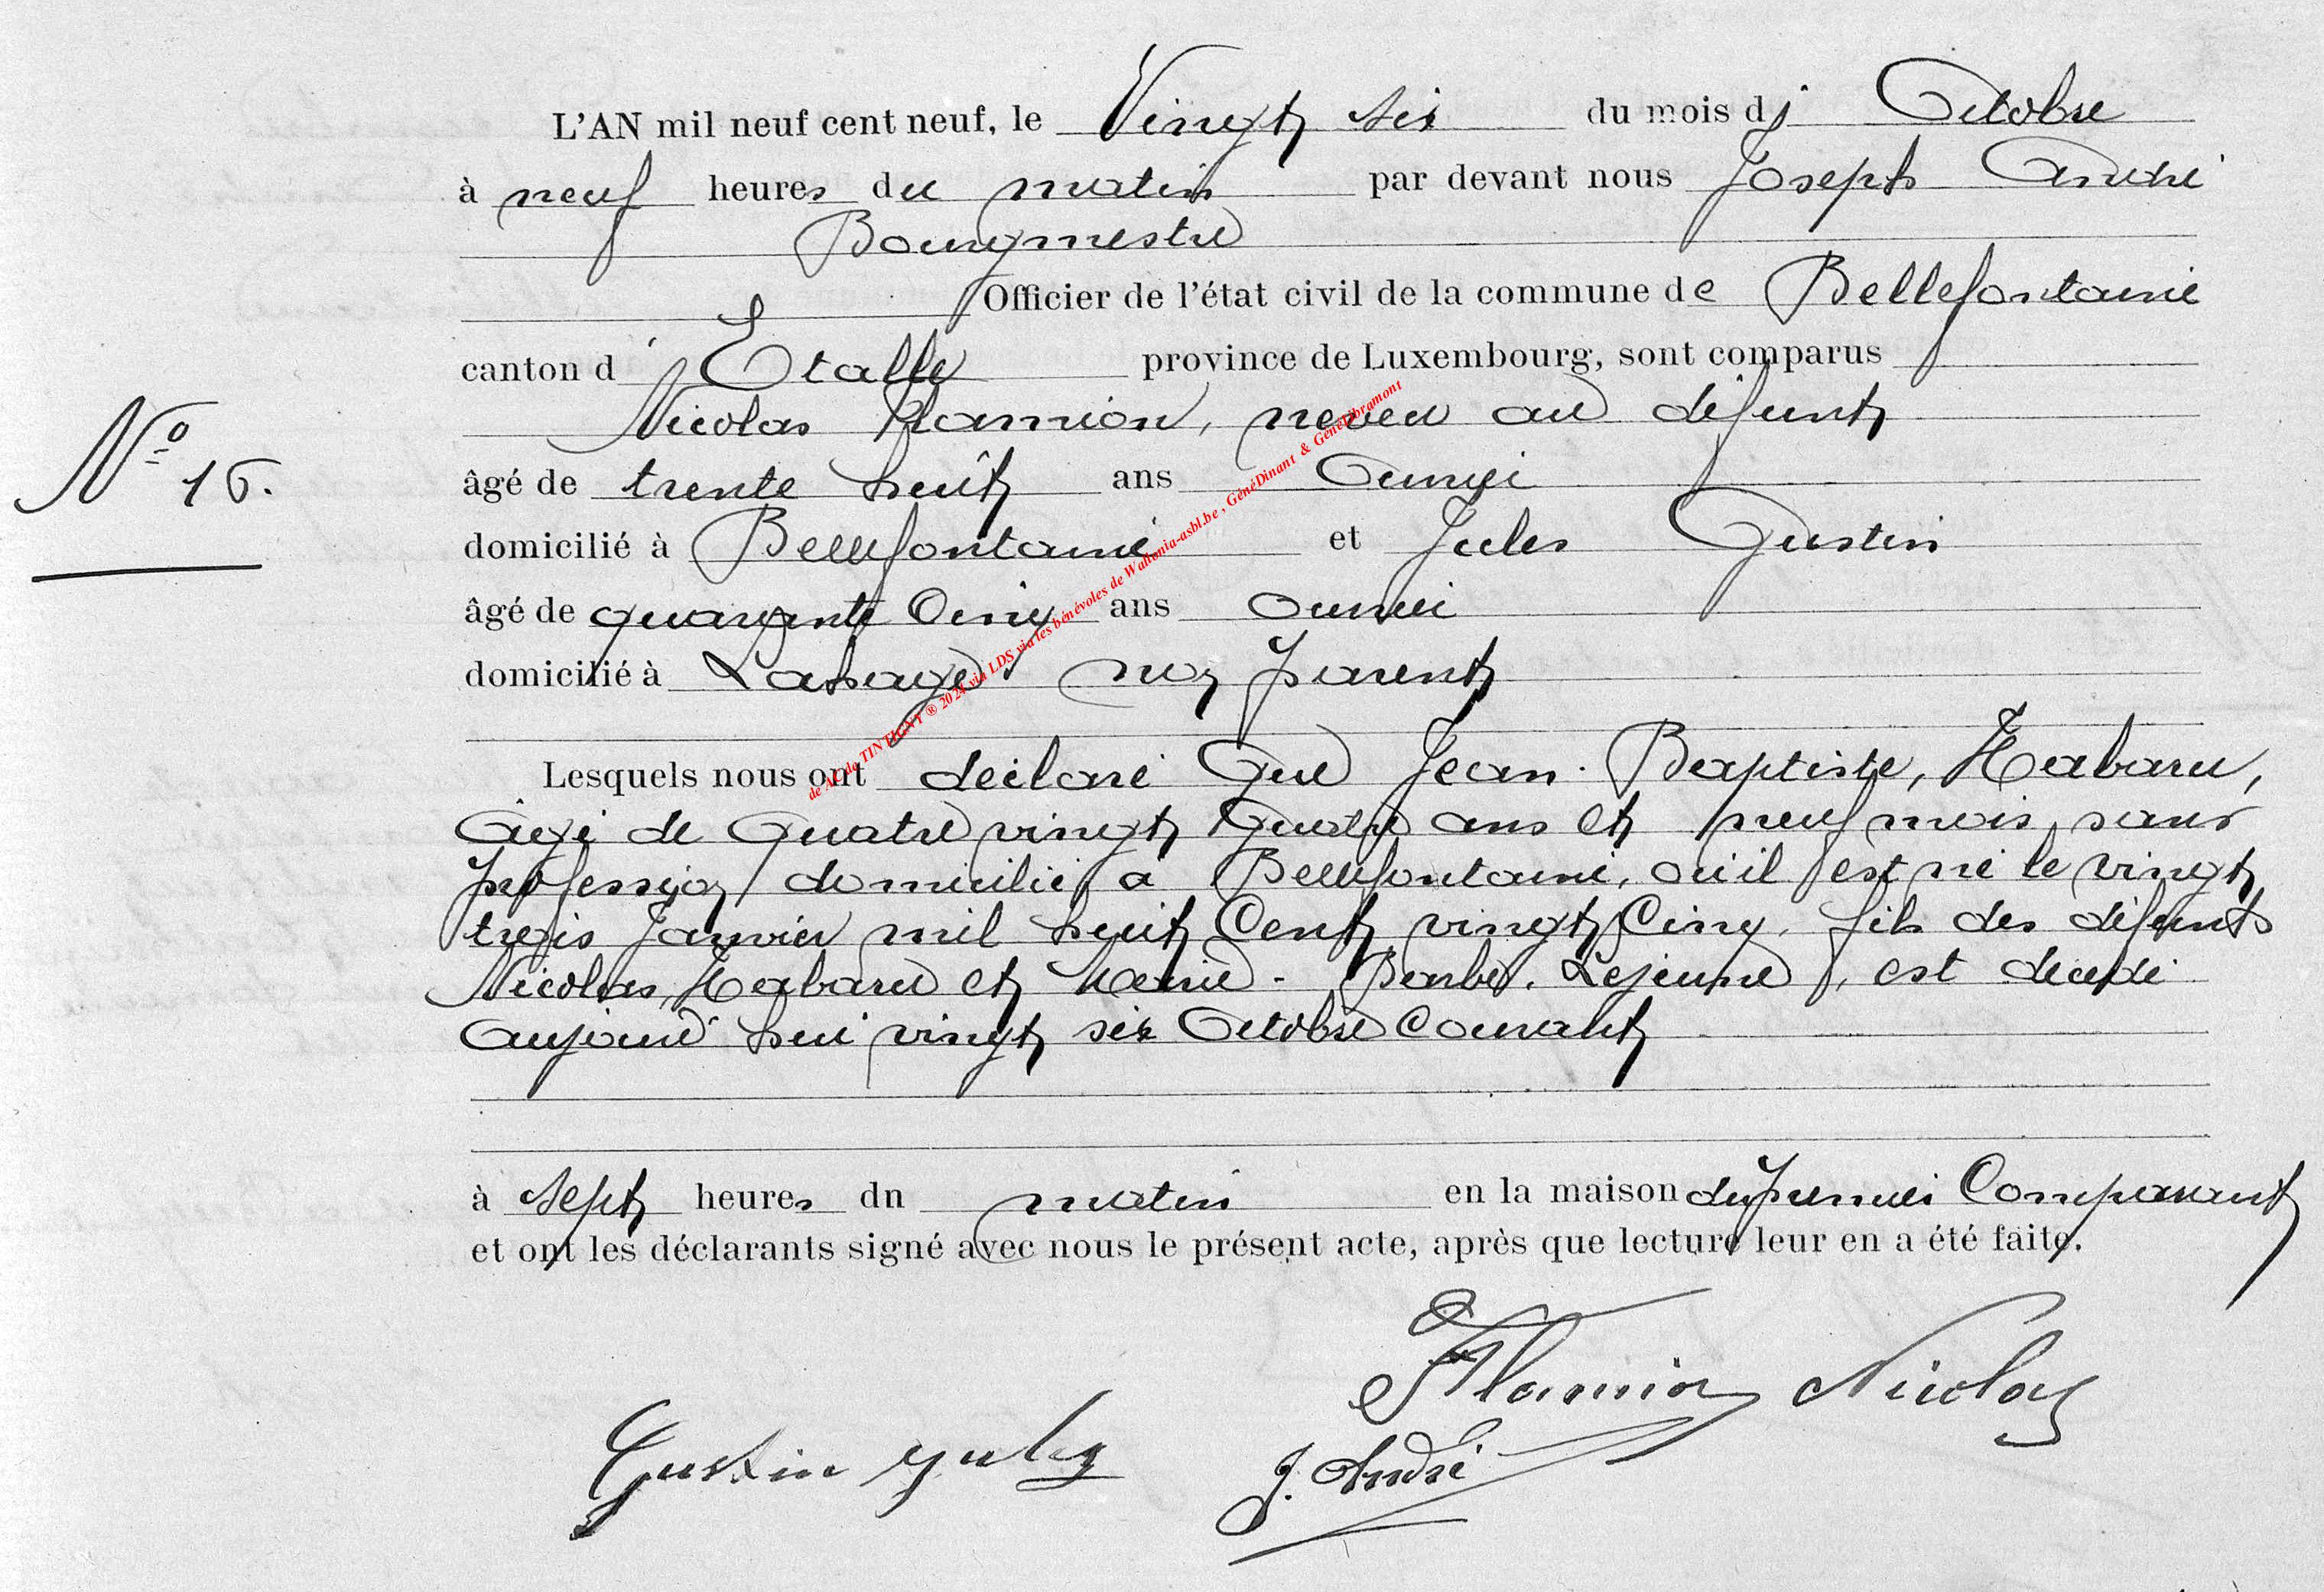 L'AN mil neuf cent neuf, le Vingt six du mois d' Octobre
à neuf heures du matin par devant nous Joseph André
Bourgmestre
Officier de l'état civil de la commune de Bellefontaine
canton d' Etalle province de Luxembourg, sont comparus
Nicolas Flamion, neveu au défunt
Nº 16.
âgé de trente huit ans Ouvrier
domicilié à Bellefontaine et Jules Gustin
âgé de quarante Cinq ans ouvrier
domicilié à Lahage non parent
Lesquels nous ont déclaré Que Jean-Baptiste, Habaru,
âgé de Quatre vingt Quatre ans et neuf mois, sans
profession, domicilié à Bellefontaine, où il est né le vingt
trois Janvier mil huit Cent vingt Cinq, fils des défunts
Nicolas, Habaru et Marie-Barbe, Lejeune, est décédé
aujourd'hui vingt six Octobre Courant
à sept heures du matin en la maison du premier Comparant
et ont les déclarants signé avec nous le présent acte, après que lecture leur en a été faite.
Flamion Nicolas
Gustin Jules J. André
de AC de TINTIGNY ® 2024 via LDS via les bénévoles de Wallonia-asbl.be, GénéDinant & GénéLibramont